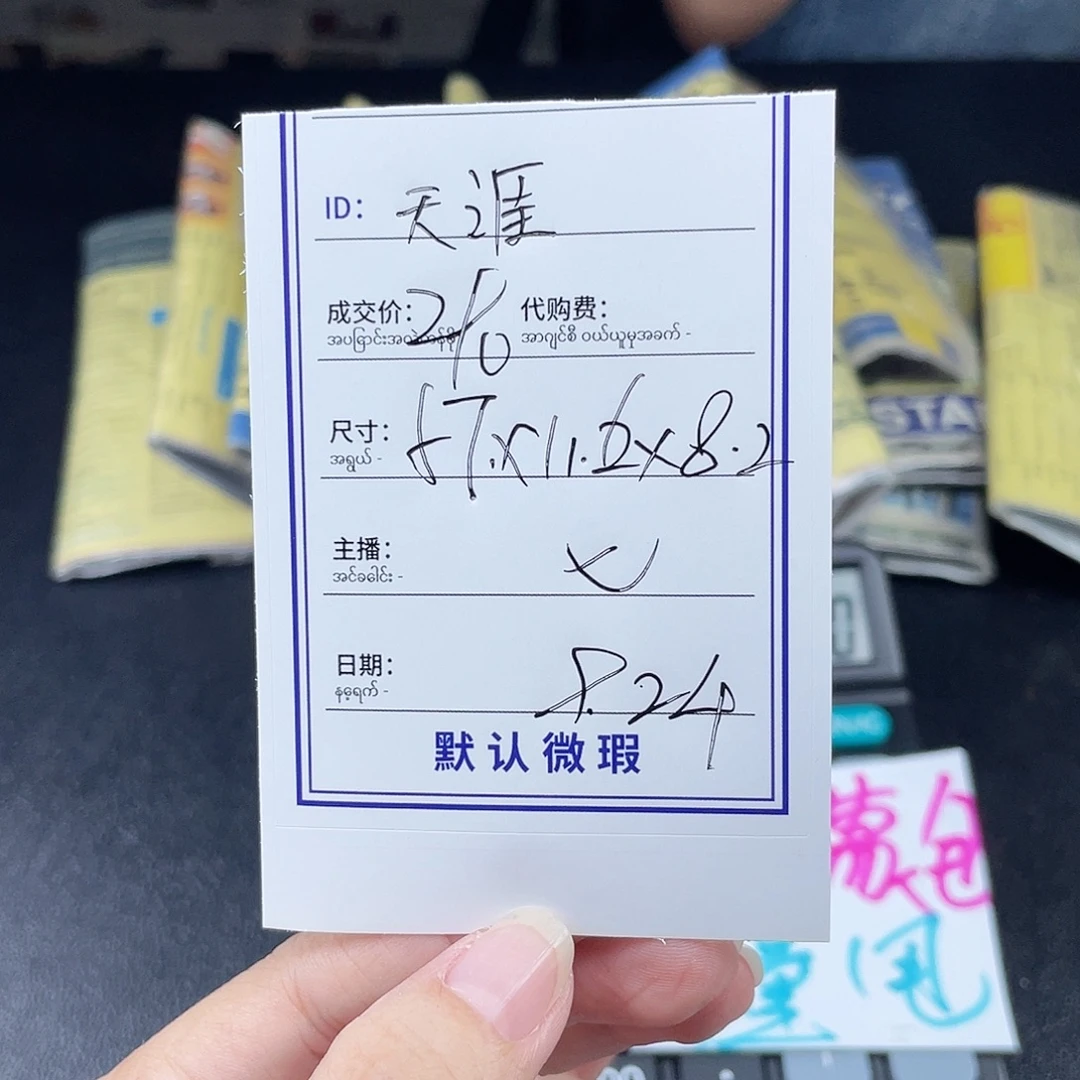 ID: 天涯
成交价: 210 代购费:
အပြောင်းအလဲတန်ဖိုး အာဂျင်စီ ဝယ်ယူမှုအခက် -
尺寸: 57.×11.6×8.2
အရွယ် -
主播:
အင်ခေါင်း -
日期: 8.24
နေ့ရက် -
默认微瑕
STA
清仓